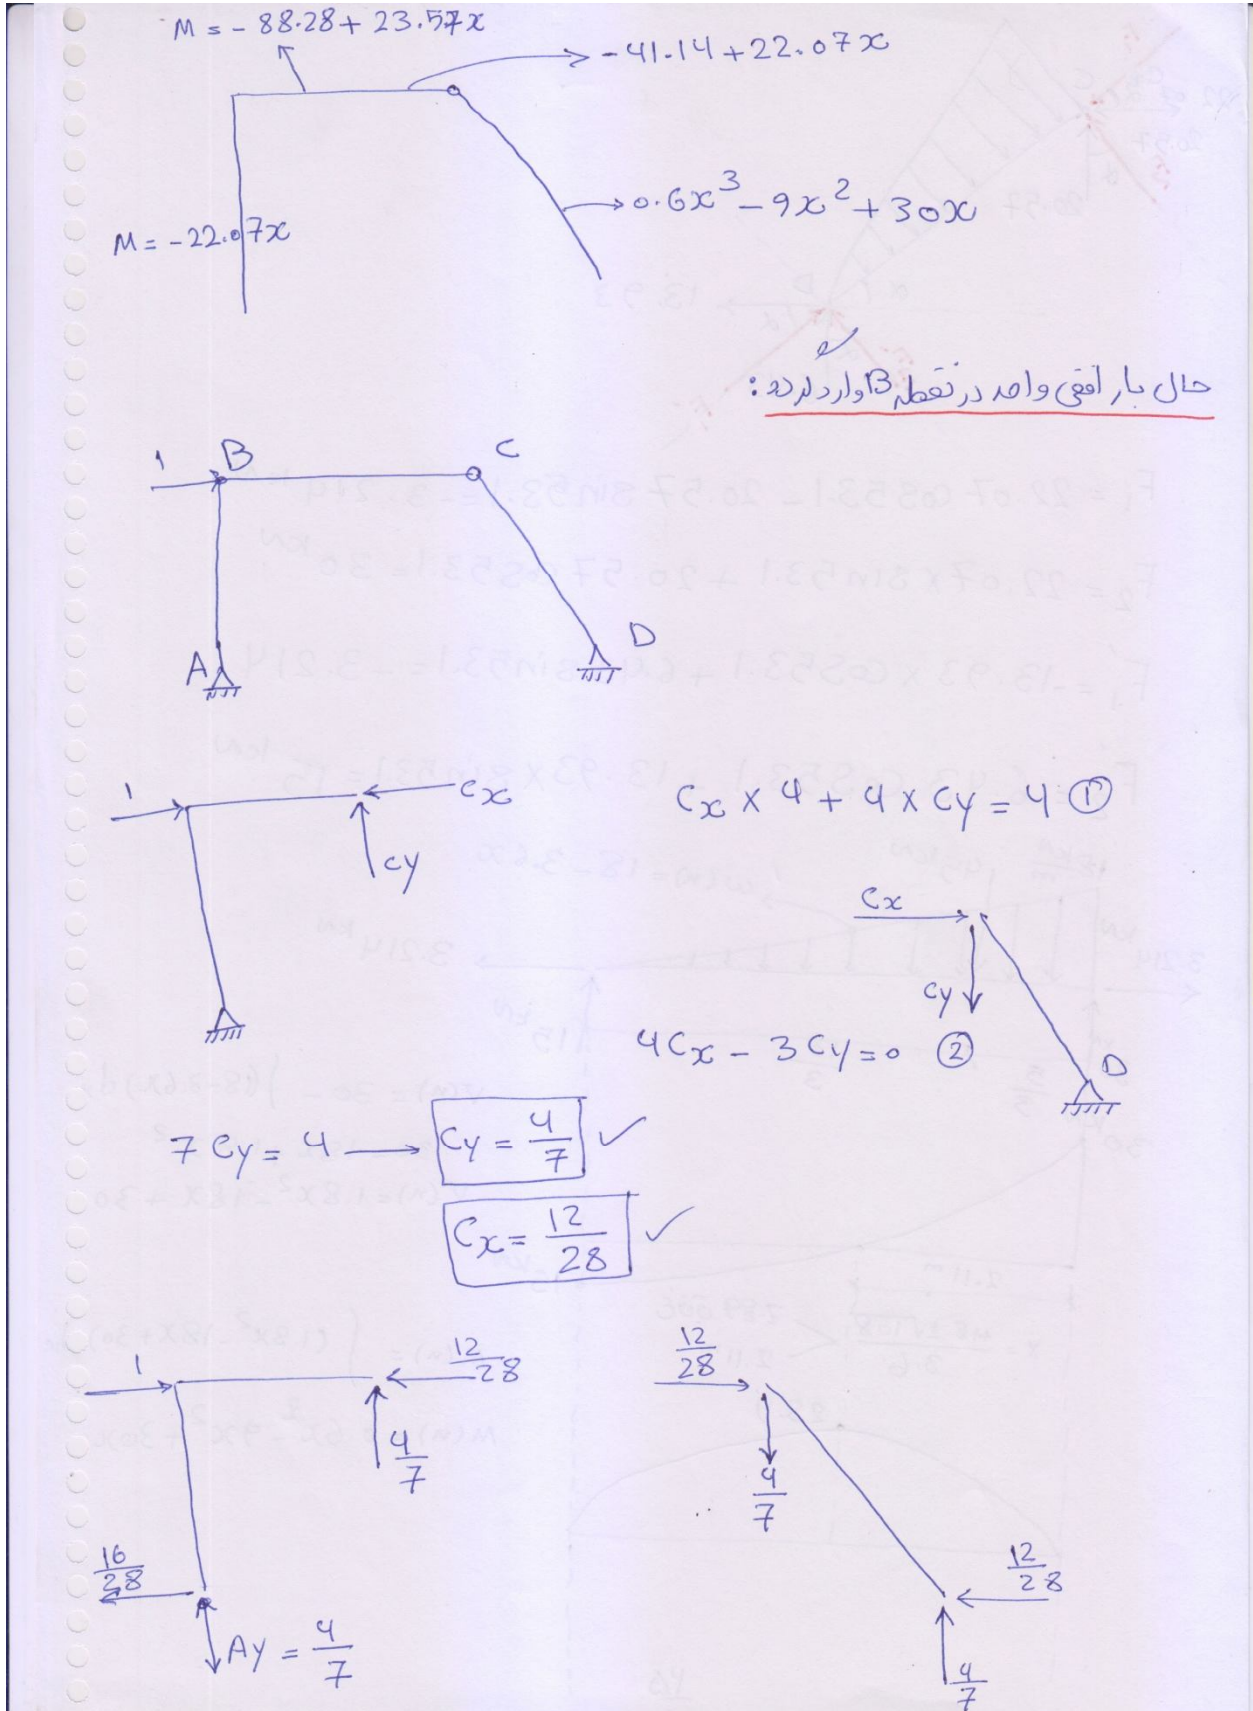 M = - 88.28 + 23.57x
-41.14 + 22.07x
0.6x³ - 9x² + 30x
M = -22.07x
حال بار افقی واحد در نقطه B وارد گردد :
1
B
C
A
D
1
Cx
Cy
Cx × 4 + 4 × Cy = 4 ①
Cx
Cy
4Cx - 3Cy = 0 ②
D
7Cy = 4 → Cy = 4/7 ✓
Cx = 12/28 ✓
1
12/28
4/7
16/28
Ay = 4/7
12/28
4/7
12/28
4/7